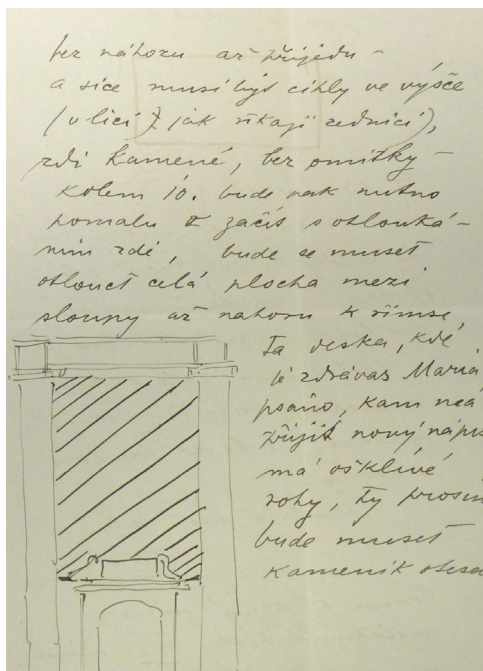 bez náhozu až přijedu –
a sice musí být cihly ve výšce
(v líci) jak říkají zedníci),
zdi kamené, bez omítky –
kolem 10. bude pak nutno
pomalu začít s otlouká-
ním zdě, bude se muset
otlouct celá plocha mezi
sloupy až nahoru k římse,
Ta deska, kde
je zdrávas Maria
psáno, kam má
přijít nový nápis
má ošklivé
rohy, ty prosím
bude muset
kameník otesa